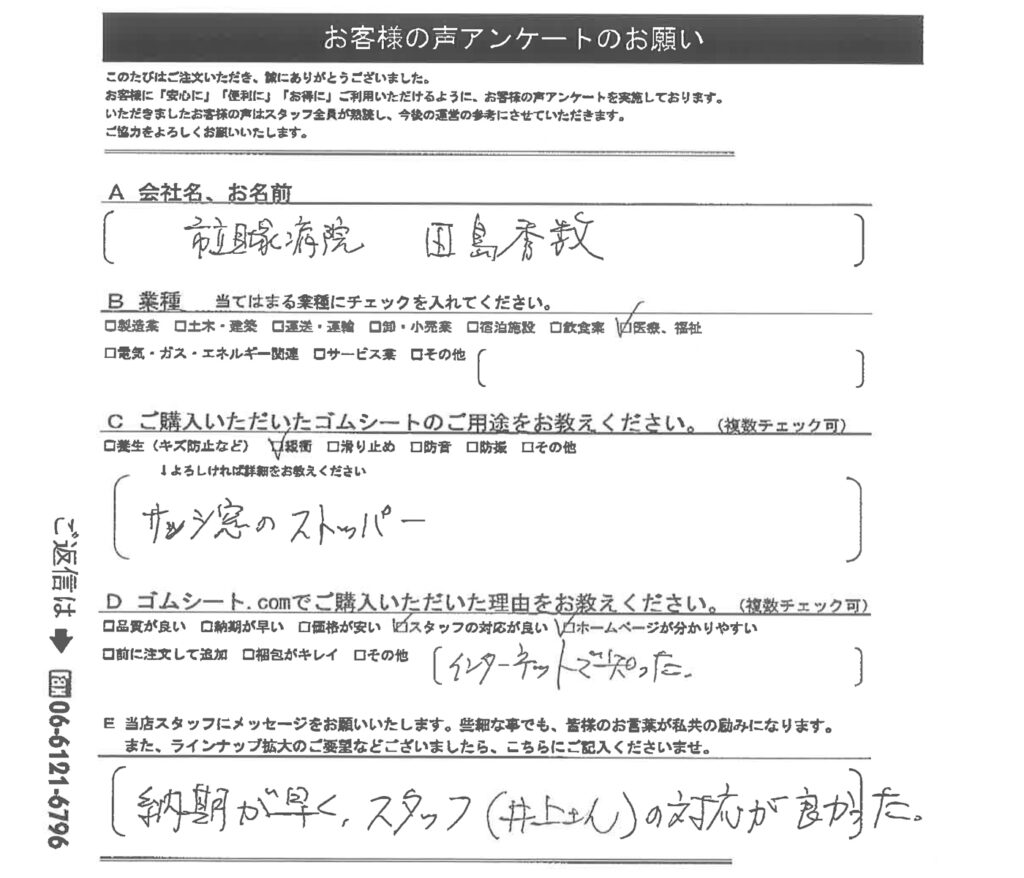 お客様の声アンケートのお願い
このたびはご注文いただき、誠にありがとうございました。
お客様に「安心に」「便利に」「お得に」ご利用いただけるように、お客様の声アンケートを実施しております。
いただきましたお客様の声はスタッフ全員が熟読し、今後の運営の参考にさせていただきます。
ご協力をよろしくお願いいたします。
A 会社名、お名前
市立 病院 田島秀数
B 業種 当てはまる業種にチェックを入れてください。
□製造業 □土木・建築 □運送・運輸 □卸・小売業 □宿泊施設 □飲食業 ☑医療、福祉
□電気・ガス・エネルギー関連 □サービス業 □その他
C ご購入いただいたゴムシートのご用途をお教えください。(複数チェック可)
□養生(キズ防止など) ☑緩衝 □滑り止め □防音 □防振 □その他
↓よろしければ詳細をお教えください
サッシ窓のストッパー
D ゴムシート.comでご購入いただいた理由をお教えください。(複数チェック可)
□品質が良い □納期が早い □価格が安い ☑スタッフの対応が良い ☑ホームページが分かりやすい
□前に注文して追加 □梱包がキレイ □その他 インターネットで知った。
E 当店スタッフにメッセージをお願いいたします。些細な事でも、皆様のお言葉が私共の励みになります。
また、ラインナップ拡大のご要望などございましたら、こちらにご記入くださいませ。
納期が早く、スタッフ(井上さん)の対応が良かった。
ご返信は➡fax06-6121-6796